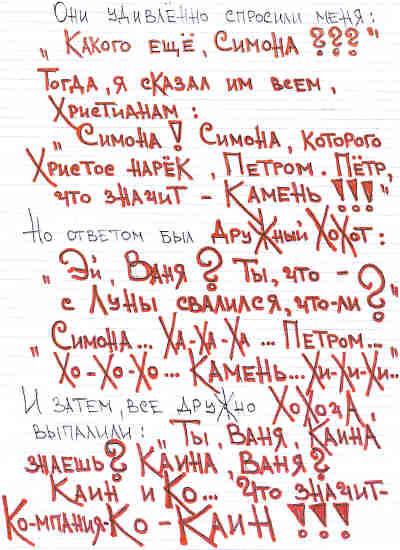 Они удивлённо спросили меня:
„Какого ещё, Симона ???"
Тогда, я сказал им всем,
Христианам:
„Симона! Симона, которого
Христос нарёк, Петром. Пётр,
что значит - Камень !!!"
Но ответом был дружный Хохот:
„Эй, Ваня? Ты, что -
с Луны свалился, что-ли?"
„Симона... Ха-Ха-Ха... Петром...
Хо-Хо-Хо... Камень... Хи-Хи-Хи...
И затем, все дружно Хохоча,
выпалили: „Ты, Ваня, Каина
знаешь? Каина, Ваня?
Каин и Ко... Что значит-
Ко-мпания-Ко-Каин !!!